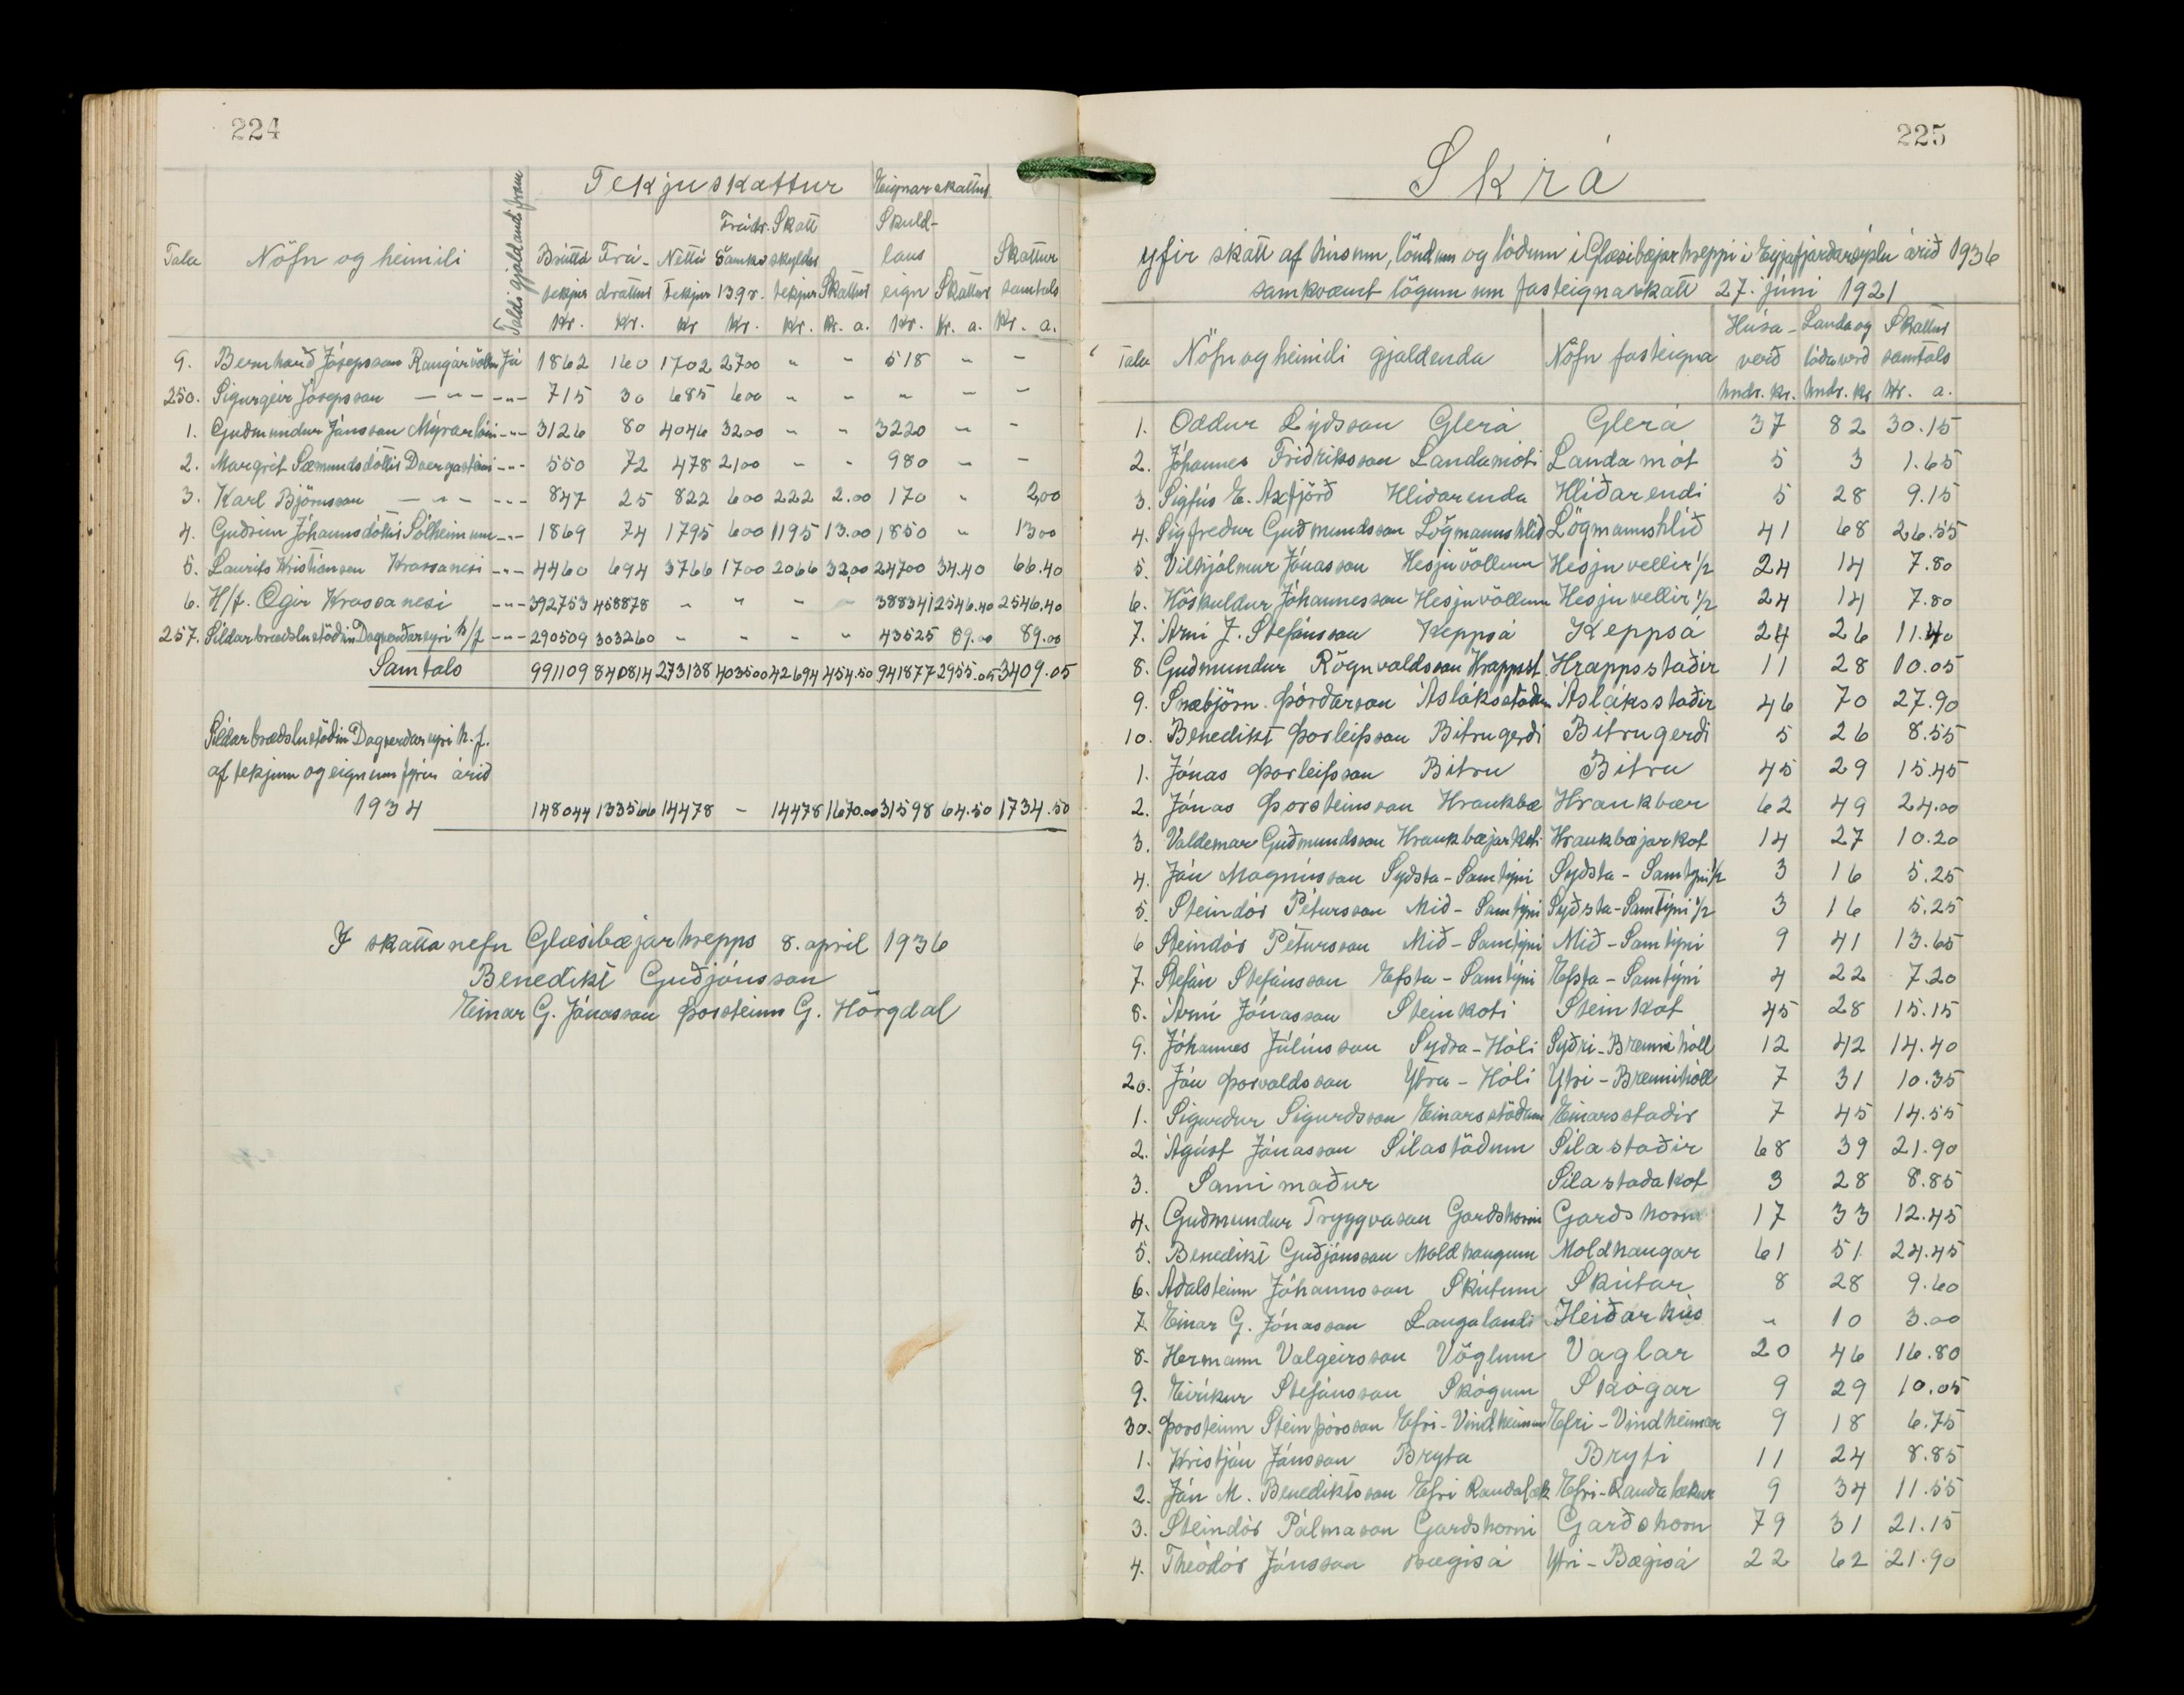 224
Taldi gjaldandi fram
Tekjuskattur Eignarskattur
Frádr. Skatt Skuld-
Tala Nöfn og heimili Brúttó Frá- Nettó Samkv skyldar laus Skattur
tekjur dráttur Tekjur 13gr. tekjur Skattur eign Skattur samtals
Kr. Kr. Kr Kr. Kr. Kr. a. Kr. Kr. a. Kr. a.
9. Bernharð Jósepsson Rangárvöllum Já 1862 160 1702 2700 " - 518 - -
250. Sigurgeir Jósepsson — " — -"- 715 30 685 600 " " " - -
1. Guðmundur Jónsson Mýrarlóni -"- 3126 80 4046 3200 " " 3220 " -
2. Margrét Sæmundsdóttir Dvergasteini -"- 550 72 478 2100 - - 980 - -
3. Karl Björnsson — " — -"- 847 25 822 600 222 2.00 170 " 2,00
4. Guðrún Jóhannsdóttir Sólheimum -"- 1869 74 1795 600 1195 13.00 1850 " 13.00
5. Laurits Kristiansen Krossanesi -"- 4460 694 3766 1700 2066 32,00 24700 34.40 66.40
6. H/f. Ægir Krossanesi -"- 392753 458878 - " - - 388341 2546.40 2546.40
257. Síldarbræðslustöðin Dagverðareyri h/f -"- 290509 303260 - - - " 43525 89.00 89.00
Samtals 991109 840814 273138 403500 42694 454.50 941877 2955.05 3409.05
Síldarbræðslustöðin Dagverðareyri h.f.
af tekjum og eignum fyrir árið
1934 148044 133566 14478 - 14478 1670.00 31598 64.50 1734.50
Í skattanefn Glæsibæjarhrepps 8. april 1936
Benedikt Guðjónsson
Einar G. Jónasson Þorsteinn G. Hörgdal
225
Skrá
yfir skatt af húsum, löndum og lóðum í Glæsibæjarhreppi í Eyjafjarðarsýslu árið 1936
samkvæmt lögum um fasteignaskatt 27. júní 1921
Húsa- Landa og Skattur
Tala Nöfn og heimili gjaldenda Nöfn fasteigna verð lóða verð samtals
hndr. kr. hndr. kr Kr. a.
1. Oddur Lýðsson Glerá Glerá 37 82 30.15
2. Jóhannes Friðriksson Landamóti Landamót 5 3 1.65
3. Sigfús E. Axfjörð Hlíðarenda Hlíðarendi 5 28 9.15
4. Sigfreður Guðmundsson Lögmannshlíð Lögmannshlíð 41 68 26.55
5. Vilhjálmur Jónasson Hesjuvöllum Hesjuvellir 1/2 24 14 7.80
6. Höskuldur Jóhannesson Hesjuvöllum Hesjuvellir 1/2 24 14 7.80
7. Árni J. Stefánsson Keppsá Keppsá 24 26 11.40
8. Guðmundur Rögnvaldsson Hrappsst. Hrappsstaðir 11 28 10.05
9. Snæbjörn Þórðarson Ásláksstöðum Ásláksstaðir 46 70 27.90
10. Benedikt Þorleifsson Bitrugerði Bitrugerði 5 26 8.55
1. Jónas Þorleifsson Bitru Bitru 45 29 15.45
2. Jónas Þorsteinsson Hraukbæ Hraukbær 62 49 24.00
3. Valdemar Guðmundsson Hraukbæjarkoti Hraukbæjarkot 14 27 10.20
4. Jón Magnússon Syðsta-Samtýni Syðsta-Samtýni 1/2 3 16 5.25
5. Steindór Pétursson Mið-Samtýni Syðsta-Samtýni 1/2 3 16 5.25
6 Steindór Pétursson Mið-Samtýni Mið-Samtýni 9 41 13.65
7. Stefán Stefánsson Efsta-Samtýni Efsta-Samtýni 4 22 7.20
8. Árni Jónasson Steinkoti Steinkot 45 28 15.15
9. Jóhannes Júlíusson Syðra-Hóli Syðri-Brennihóll 12 42 14.40
20. Jón Þorvaldsson Ytra-Hóli Ytri-Brennihóll 7 31 10.35
1. Sigurður Sigurðsson Einarsstöðum Einarsstaðir 7 45 14.55
2. Ágúst Jónasson Sílastöðum Sílastaðir 68 39 21.90
3. Sami maður Sílastaðakot 3 28 8.85
4. Guðmundur Tryggvason Garðshorni Garðshorn 17 33 12.45
5. Benedikt Guðjónsson Moldhaugum Moldhaugar 61 51 24.45
6. Aðalsteinn Jóhannsson Skútum Skútar 8 28 9.60
7. Einar G. Jónasson Laugalandi Heiðarhús " 10 3.00
8. Hermann Valgeirsson Vöglum Vaglar 20 46 16.80
9. Eiríkur Stefánsson Skógum Skógar 9 29 10.05
30. Þorsteinn Steinþórsson Efri-Vindheimum Efri-Vindheimar 9 18 6.75
1. Kristján Jónsson Bryta Bryti 11 24 8.85
2. Jón M. Benediktsson Efri Rauðalæk Efri-Rauðalækur 9 34 11.55
3. Steindór Pálmason Garðshorni Garðshorn 79 31 21.15
4. Theódór Jónsson Bægisá Ytri-Bægisá 22 62 21.90